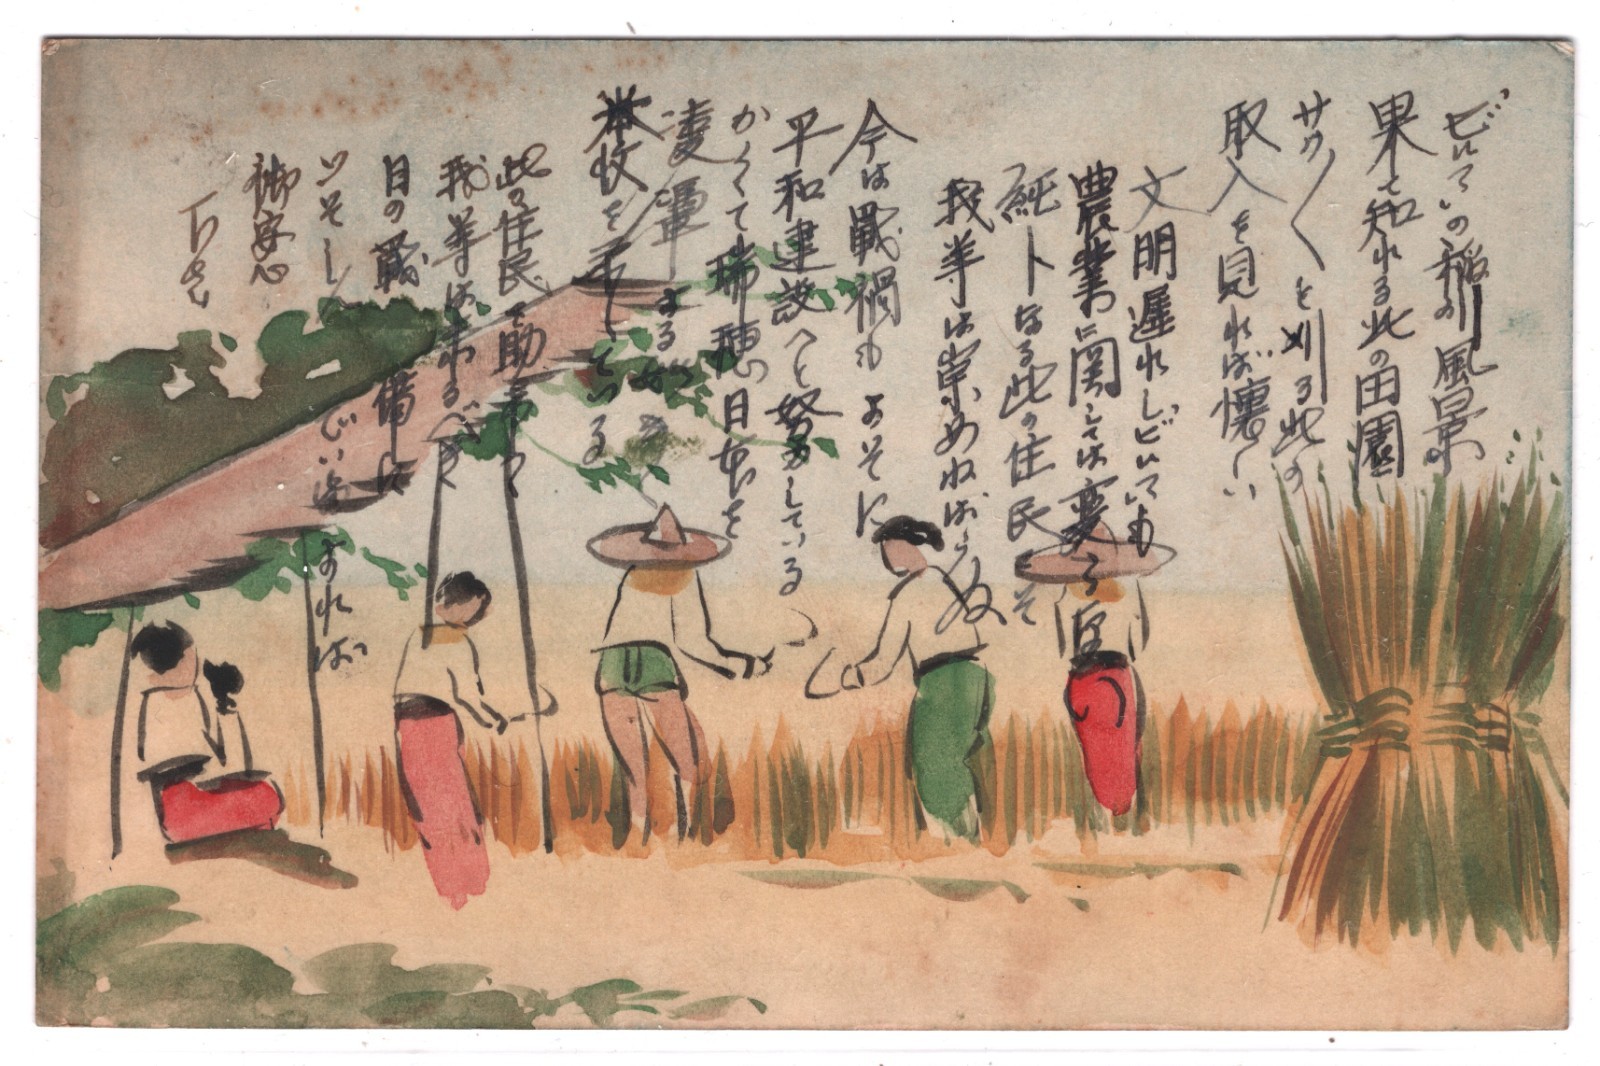 ビルマの稲の風景
果て知れる此の田園
サク〱と刈る此の
取入を見れば懐しい
文明遅れしビルマも
農業に関しては変らぬ
純トなる此の住民こそ
我等は崇めねばならぬ
今は戦禍もよそに
平和建設へと努力している
かくて瑞穂の日本を
米牧を手している
此の住民を助
我等は来るべき
日の戦備に
いそしんでい
御安心
下さい